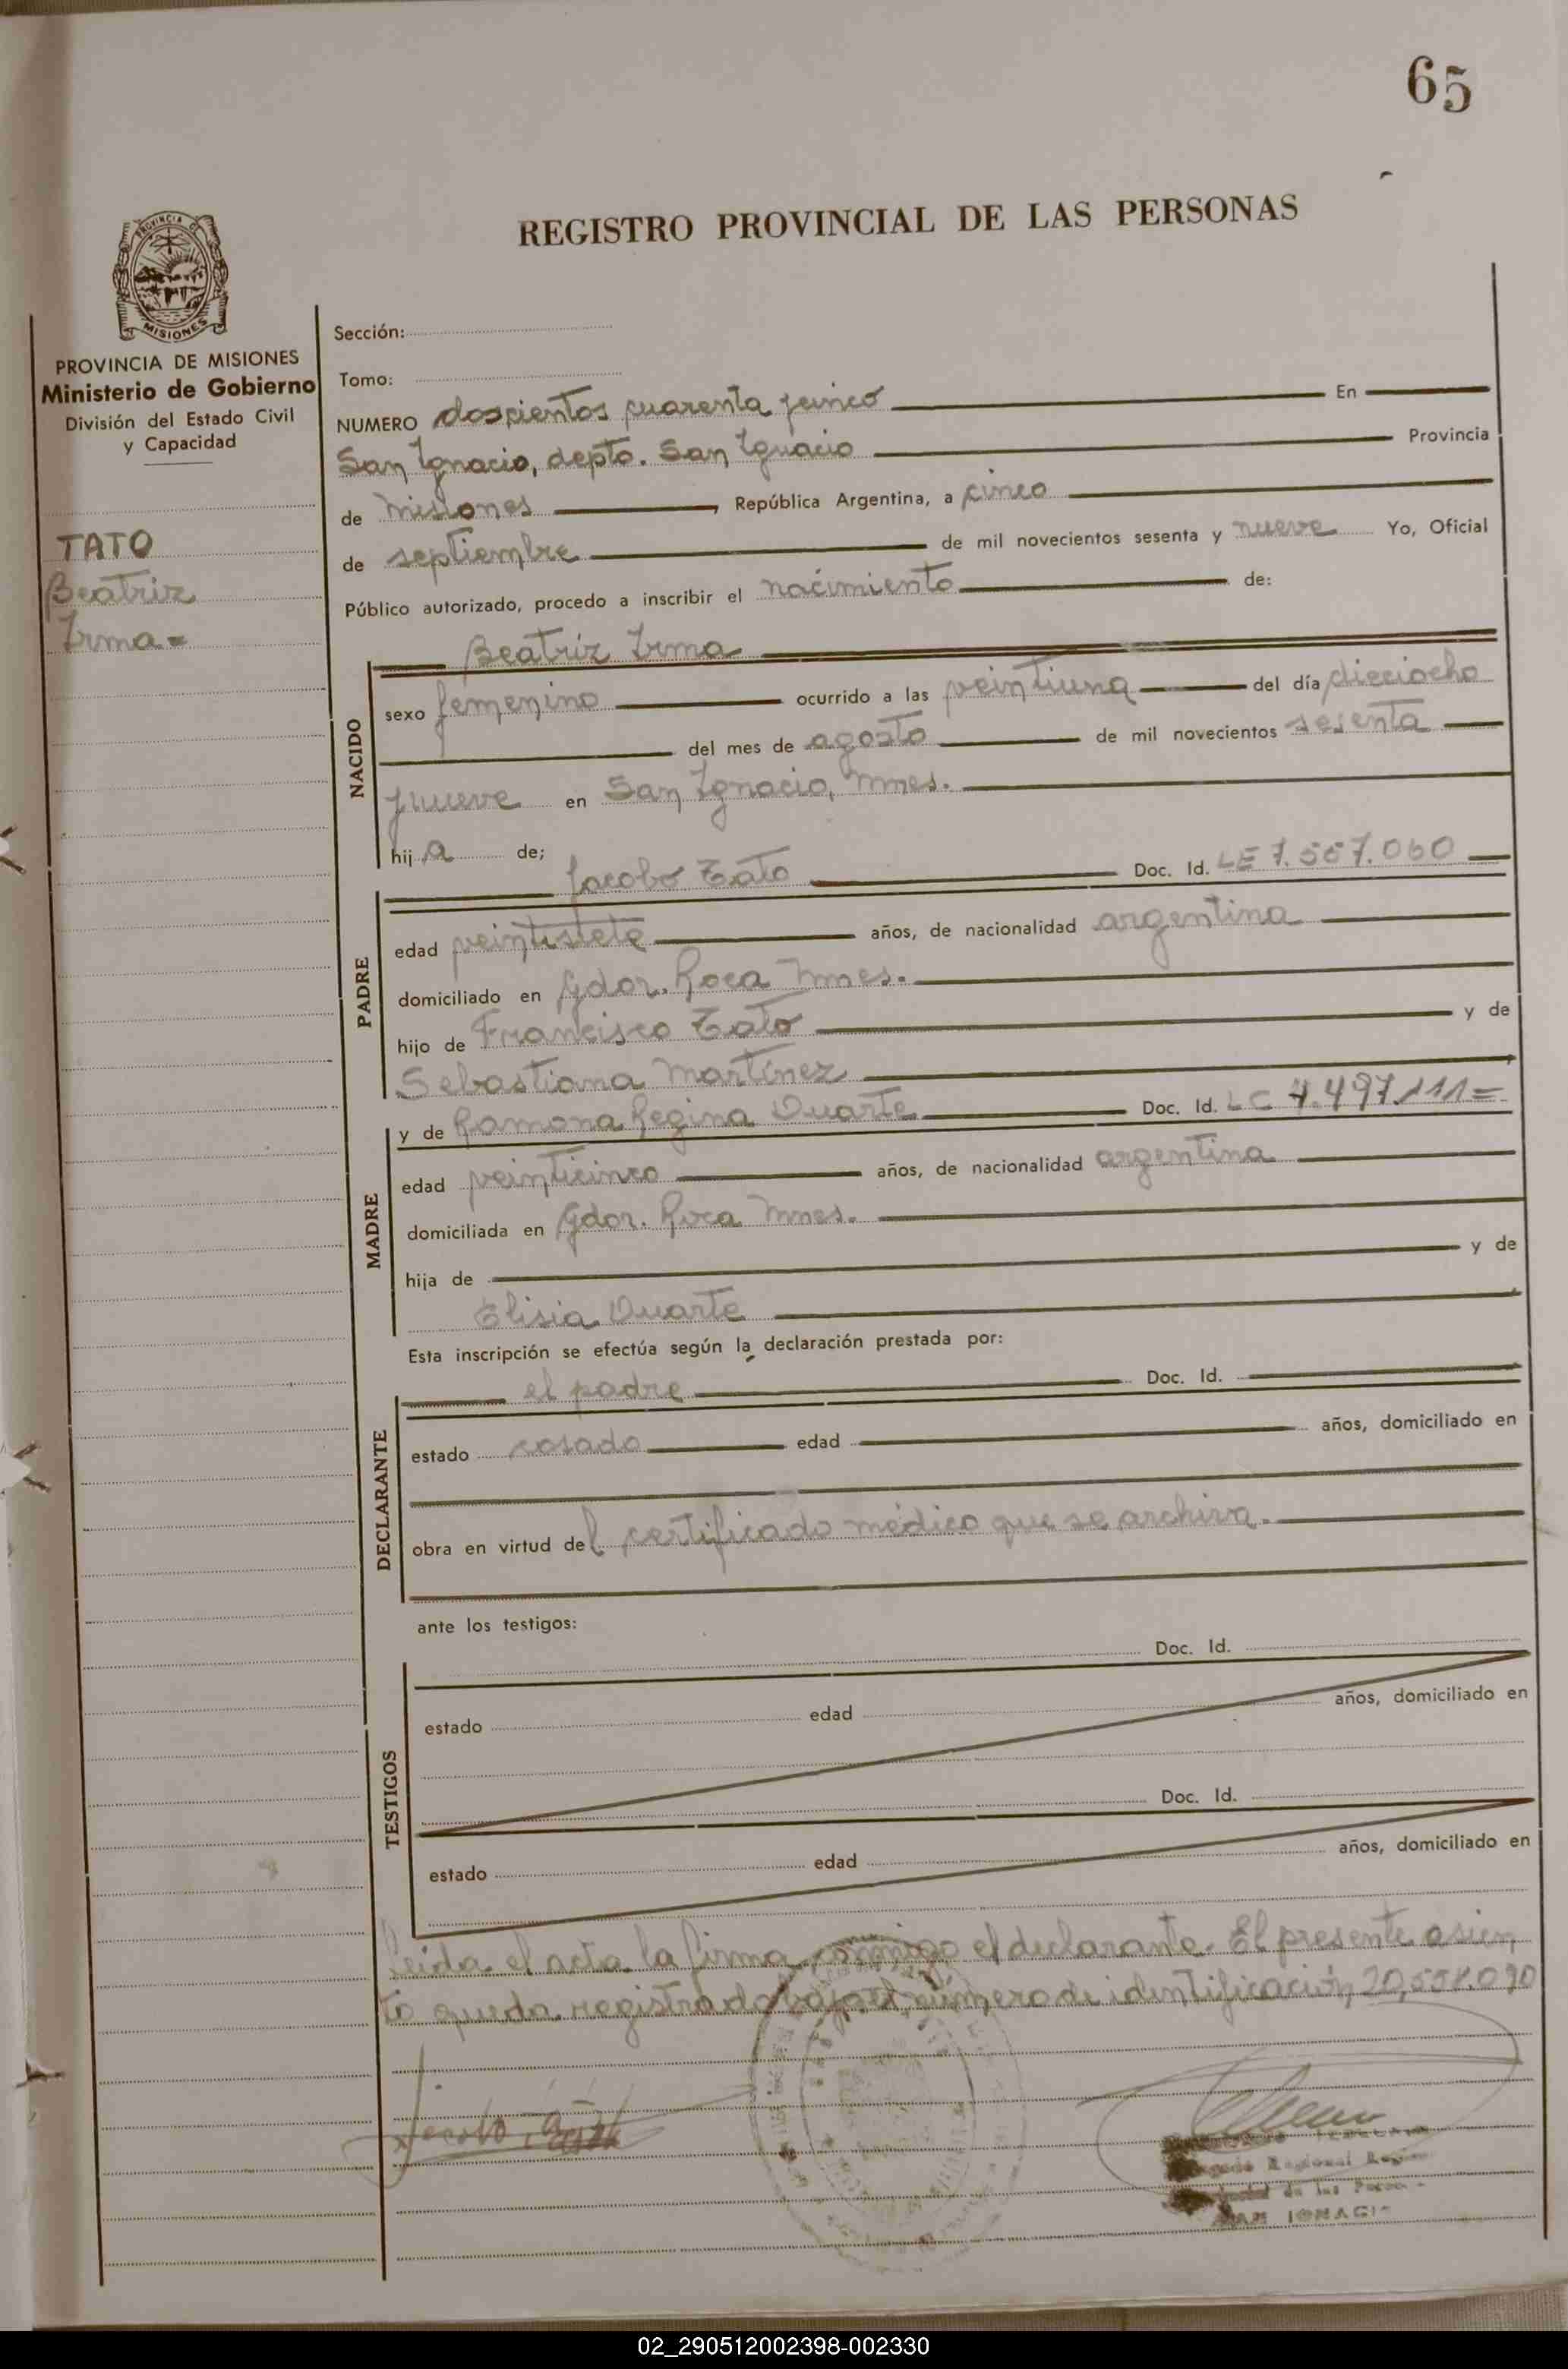 65
REGISTRO PROVINCIAL DE LAS PERSONAS
PROVINCIA
MISIONES
PROVINCIA DE MISIONES
Ministerio de Gobierno
División del Estado Civil
y Capacidad
TATO
Beatriz
Irma=
Sección:
Tomo:
NUMERO doscientos cuarenta y cinco En
San Ignacio, depto. San Ignacio Provincia
de Misiones, República Argentina, a cinco
de septiembre de mil novecientos sesenta y nueve Yo, Oficial
Público autorizado, procedo a inscribir el nacimiento de:
NACIDO
Beatriz Irma
sexo femenino ocurrido a las veintiuna del día dieciocho
del mes de agosto de mil novecientos sesenta
y nueve en San Ignacio, Mnes.
hija de;
PADRE
Jacobo Tato Doc. Id. LE 7.557.060
edad veintisiete años, de nacionalidad argentina
domiciliado en Gdor. Roca Mnes.
hijo de Francisco Tato y de
Sebastiana Martínez
MADRE
y de Ramona Regina Duarte Doc. Id. LC 4.497.111=
edad veinticinco años, de nacionalidad argentina
domiciliada en Gdor. Roca Mnes.
hija de y de
Elisia Duarte
Esta inscripción se efectúa según la declaración prestada por:
DECLARANTE
el padre Doc. Id.
estado casado edad años, domiciliado en
obra en virtud del certificado médico que se archiva.
ante los testigos:
TESTIGOS
Doc. Id.
estado edad años, domiciliado en
Doc. Id.
estado edad años, domiciliado en
Leída el acta la firma conmigo el declarante. El presente asien
to queda registrado bajo el número de identificación 20,558.090
Jacobo Tato
SAN IGNACIO
02_290512002398-002330